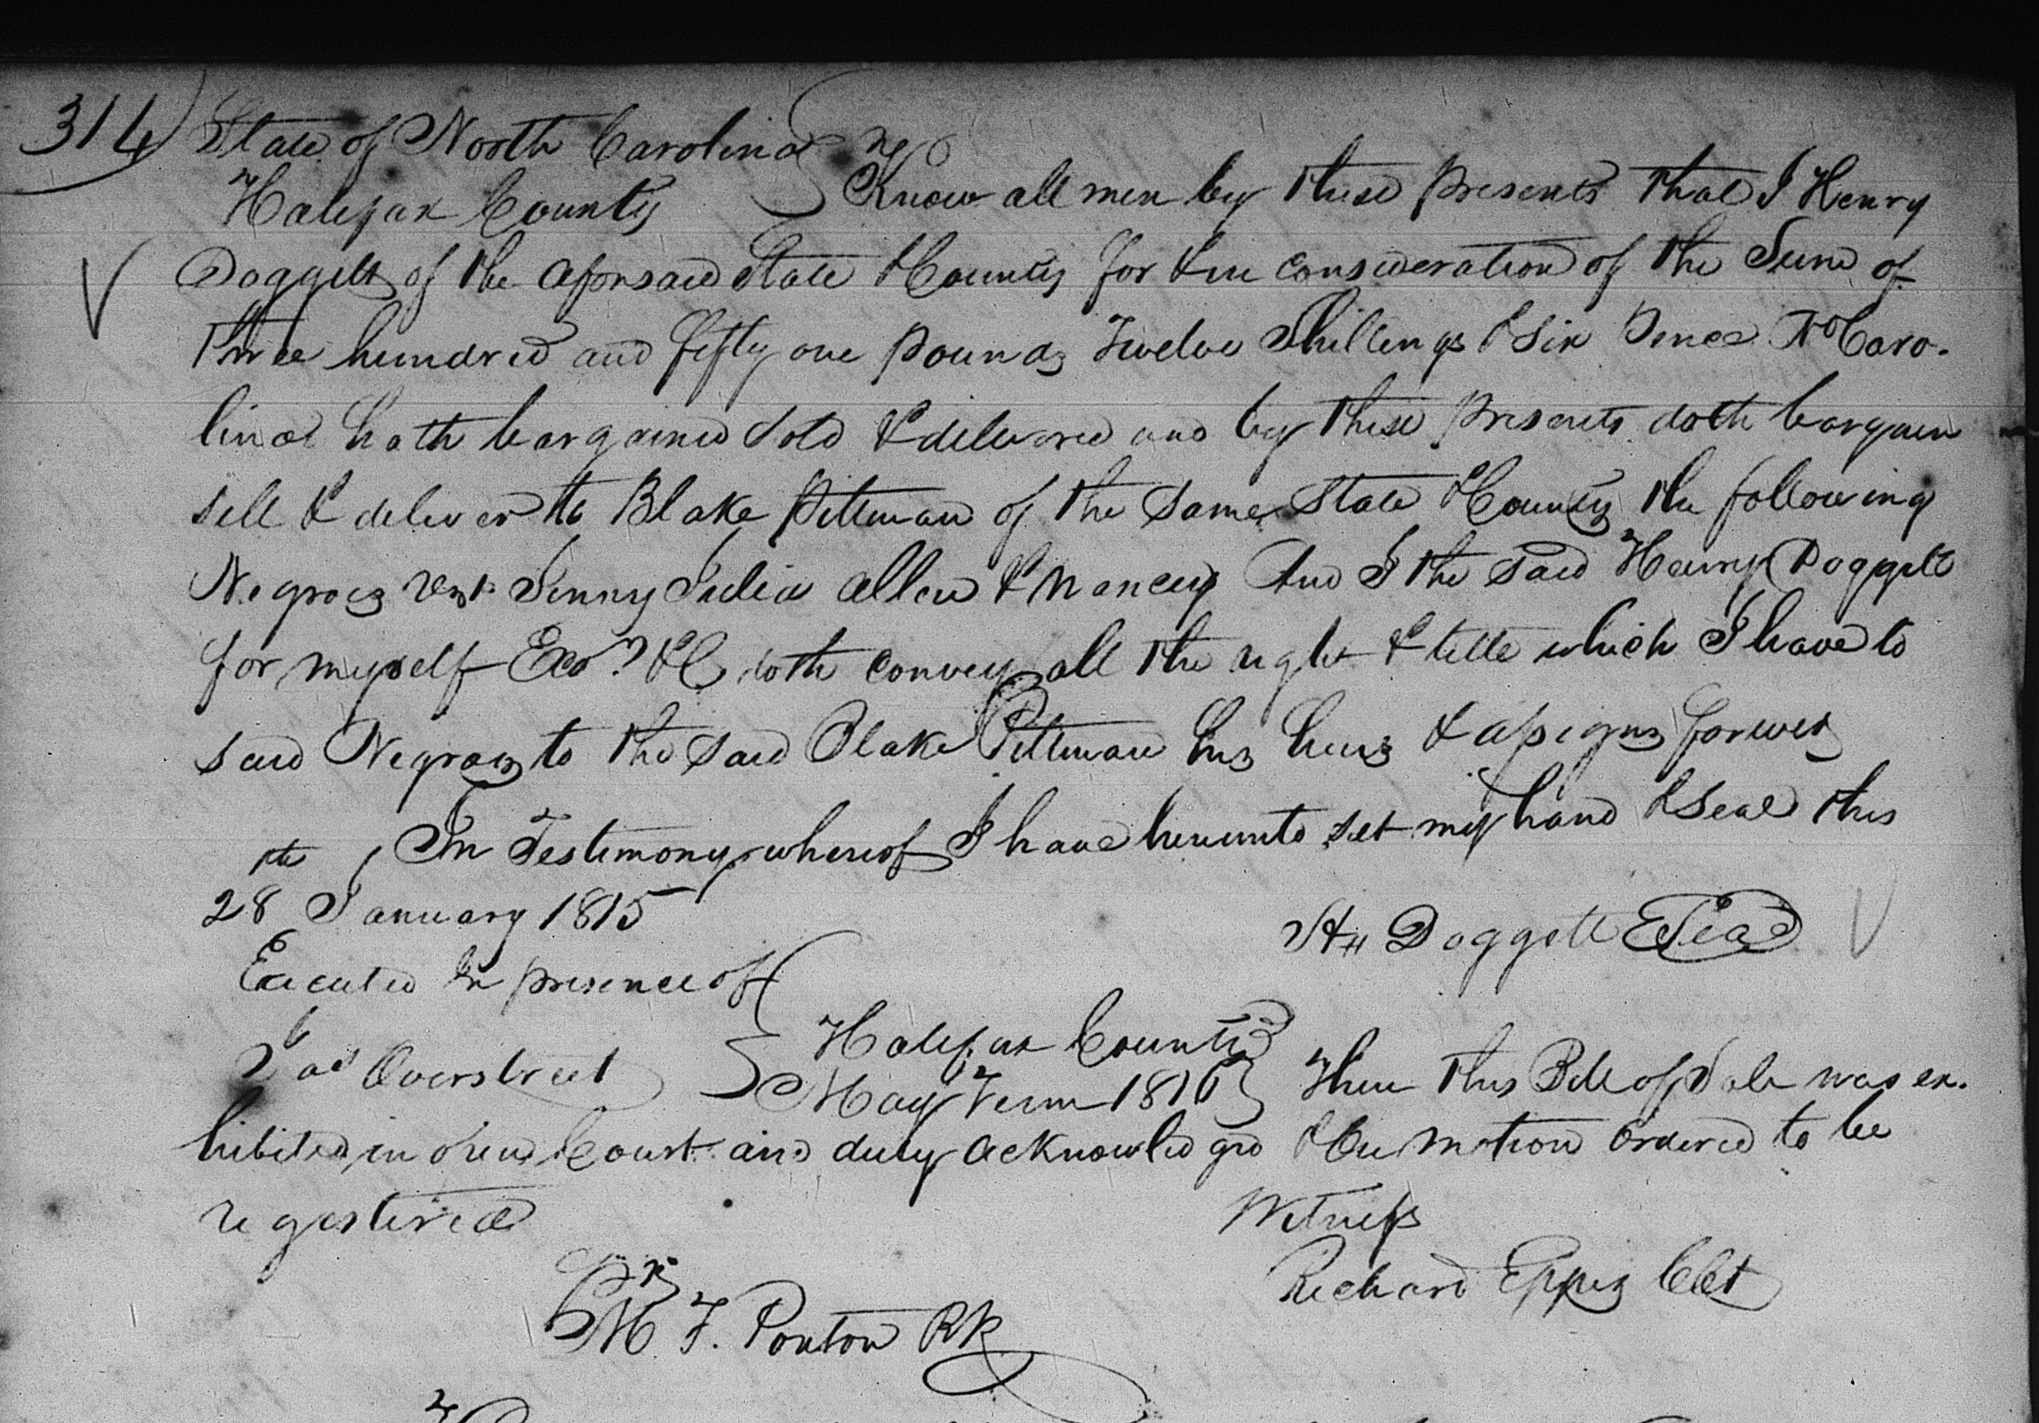 314
State of North Carolina
Halifax County } Know all men by these presents that I Henry
Doggett of the aforsaid State & County for & in consideration of the Sum of
three hundred and fifty one pounds Twelve Shillings & Six Pence No Caro-
lina hath bargained Sold & delivered and by these presents doth bargain
sell & deliver to Blake Pittman of the same State & County the following
Negroes Vizt. Jinny Julia Allen & Nancy And I the said Henry Doggett
for myself Exors &C doth convey all the right & title which I have to
said Negroes to the said Blake Pittman his heirs & assigns forever
In Testimony whereof I have hereunto set my hand & Seal this
28th January 1815
H Doggett Seal
Executed in presence of
Overstreet } Halifax County
May Term 1816 } Then this Bill of Sale was ex-
hibited in open Court and duly acknowledged & on motion ordered to be
registered
Witness
Richard Eppes Clk
M. F. Ponton